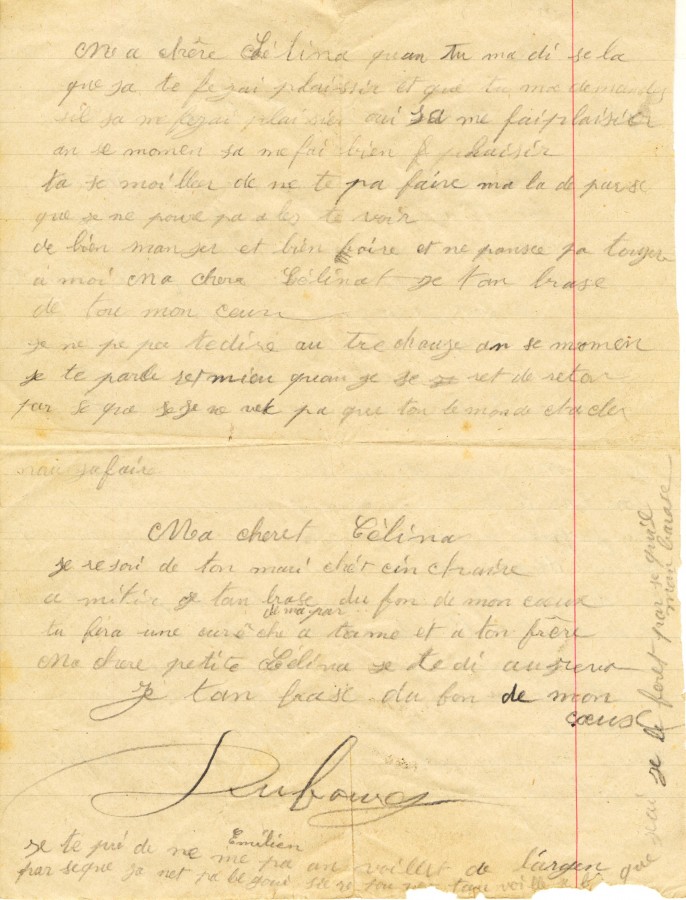 Ma chêre Célina quan tu ma di se la
que sa te ferai plaissir et que tu ma demandes
sil sa me ferai plaisier oui sa me fai plaisier
an se momen sa me fai bien plaisir
ta se moilleer de ne te pa faire ma la de par se
que se ne pouve pa a ler te voir
de bien manser et bien boire et ne pansee pa
a moi Ma chere Célinat je tan brase
de tou mon cœur
je ne pe pa te dire au tre chouze an se momen
je te parle ret miou quan je se ret de retour
par se que je ne vek pa que tou le monde
safaire
Ma cheret Célina
je re soi de ton mari
a mitié je tan brase du fon de mon cœur
de ma par
tu fera une a tame et a ton frêre
Ma chere petite Célina je te di au revoir
Je tan brase du fon de mon
cœur
Dubourg
Emilien
je te prié de ne me pa an voiller de l'argen
par se que sa net pa
que jai je le foret par se quil
man barase